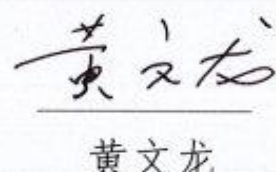 黄文龙
黄文龙